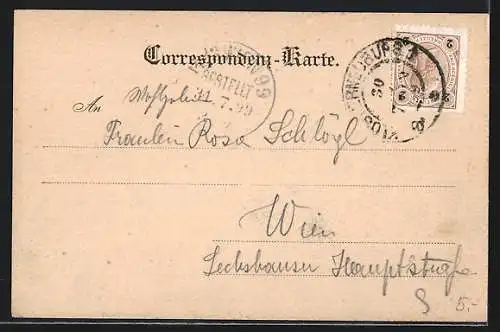 Correspondenz-Karte.
BESTELLT
7. 99
2
An Wohlgeboren
Fräulein Rosa Schlögl
Wien
Sechshauser Hauptstraße
8
5,-